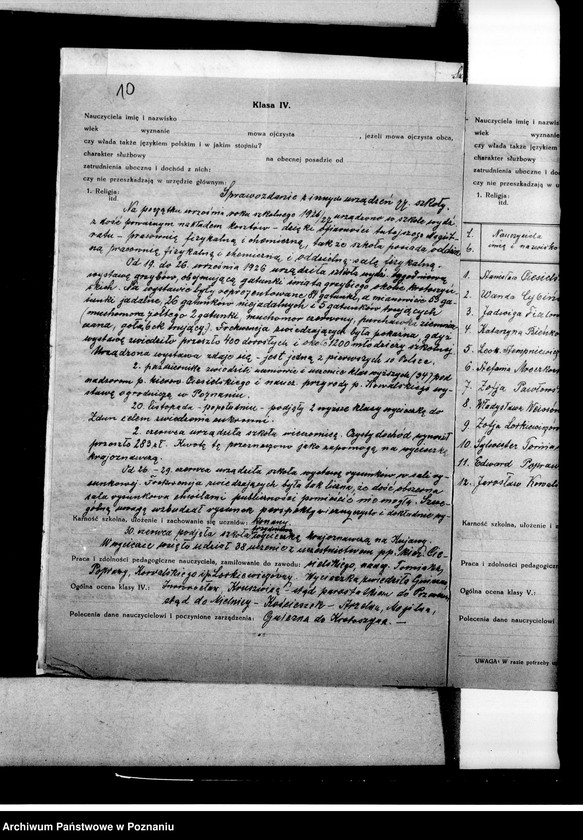 10
Klasa IV.
Nauczyciela imię i nazwisko
wiek wyznanie mowa ojczysta , jeżeli mowa ojczysta obca,
czy włada także językiem polskim i w jakim stopniu?
charakter służbowy na obecnej posadzie od
zatrudnienia uboczne i dochód z nich:
czy nie przeszkadzają w urzędzie głównym:
1. Religja:
itd.
Sprawozdanie z innych urządzeń szkoły.
Na początku września roku szkolnego 1926/27 urządzono w szkole
z dość poważnym nakładem kosztów - dzięki ofiarności tutejszego Magist-
ratu - pracownię fizykalną i chemiczną, tak że szkoła posiada oddzielną
pracownię fizykalną i chemiczną i oddzielną salę fizykalną.
Od 19. do 26. września 1926 urządziła szkoła tygodniową
wystawę grzybów, obejmującą gatunki świata grzybiego okolic krotoszyń-
skich. Na wystawie były reprezentowane 81 gatunki, a mianowicie 53 ga-
tunki jadalne, 26 gatunków niejadalnych i 5 gatunków trujących
muchomora żółtego 2 gatunki, muchomor czerwony, purchawka ziemnia-
czana, gołąbek trujący). Frekwencja zwiedzających była pokaźna, gdyż
wystawę zwiedziło przeszło 400 dorosłych i około 1200 młodzieży szkolnej.
Urządzona wystawa zdaje się - jest jedną z pierwszych w Polsce.
2. października zwiedzili uczniowie i uczenice klas wyższych (34) pod
nadzorem p. kierow. Ciesielskiego i naucz. przyrody p. Kowalskiego wy-
stawę ogrodniczą w Poznaniu.
20. listopada - popołudniu - podjęły 2 wyższe klasy wycieczkę do
Zdun celem zwiedzenia cukrowni.
2. czerwca urządziła szkoła wieczornicę. Czysty dochód wynosił
przeszło 283 zł. Kwotę tę przeznaczono jako zapomogę na wycieczkę
krajoznawczą.
Od 26. - 29. czerwca urządziła szkoła wystawę rysunków w sali ry-
sunkowej. Frekwencja zwiedzających była tak liczna, że dość obszerna
sala rysunkowa chwilami publiczności pomieścić nie mogła. Szcze-
gólną uwagę wzbudzał rysunek perspektywiczny i dokładnie wy-
Karność szkolna, ułożenie i zachowanie się uczniów: konany.
30. czerwca podjęła szkoła wycieczkę krajoznawczą na Kujawy.
W wycieczce wzięło udział 38 uczniów z uczestnictwem pp. kier. Cie-
Praca i zdolności pedagogiczne nauczyciela, zamiłowanie do zawodu: sielskiego, naucz. Tomiaka,
Poprawy, Kowalskiego i p. Lorkiewiczówny. Wycieczka zwiedziła Gniezno
Ogólna ocena klasy IV.: Inowrocław, Kruszwicę - stąd parostatkiem do
stąd do Mielnicy - Kościeszek - Strzelna, Mogilna,
Polecenia dane nauczycielowi i poczynione zarządzenia: Gniezna do Krotoszyna. -
Nauczyciela imię i nazwisk
wiek wyznanie
czy włada także językiem
charakter służbowy
zatrudnienia uboczne i doc
czy nie przeszkadzają w u
1. Religja:
itd.
Nauczyciela
imię i nazwisko
1. Stanisław Ciesiels
2. Wanda
3. Jadwiga
4. Katarzyna
5. Leon
6. Stefania
7. Zofja
8. Władysława
9. Zofja Lorkiewiczówn
10. Sylwester Tomia
11. Edward Popraw
12. Jarosław Kowals
Karność szkolna, ułożenie i z
Praca i zdolności pedagogicz
Ogólna ocena klasy V.:
Polecenia dane nauczycielowi
UWAGA: W razie potrzeby u
Archiwum Państwowe w Poznaniu